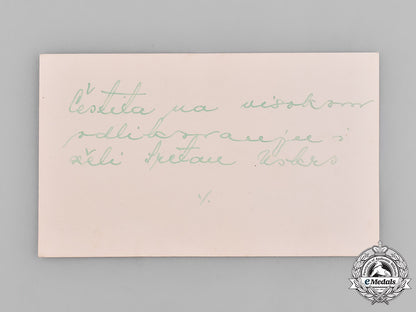 Čestita na visokom
odlikovanju i
želi sretan Uskrs
./.
eMedals